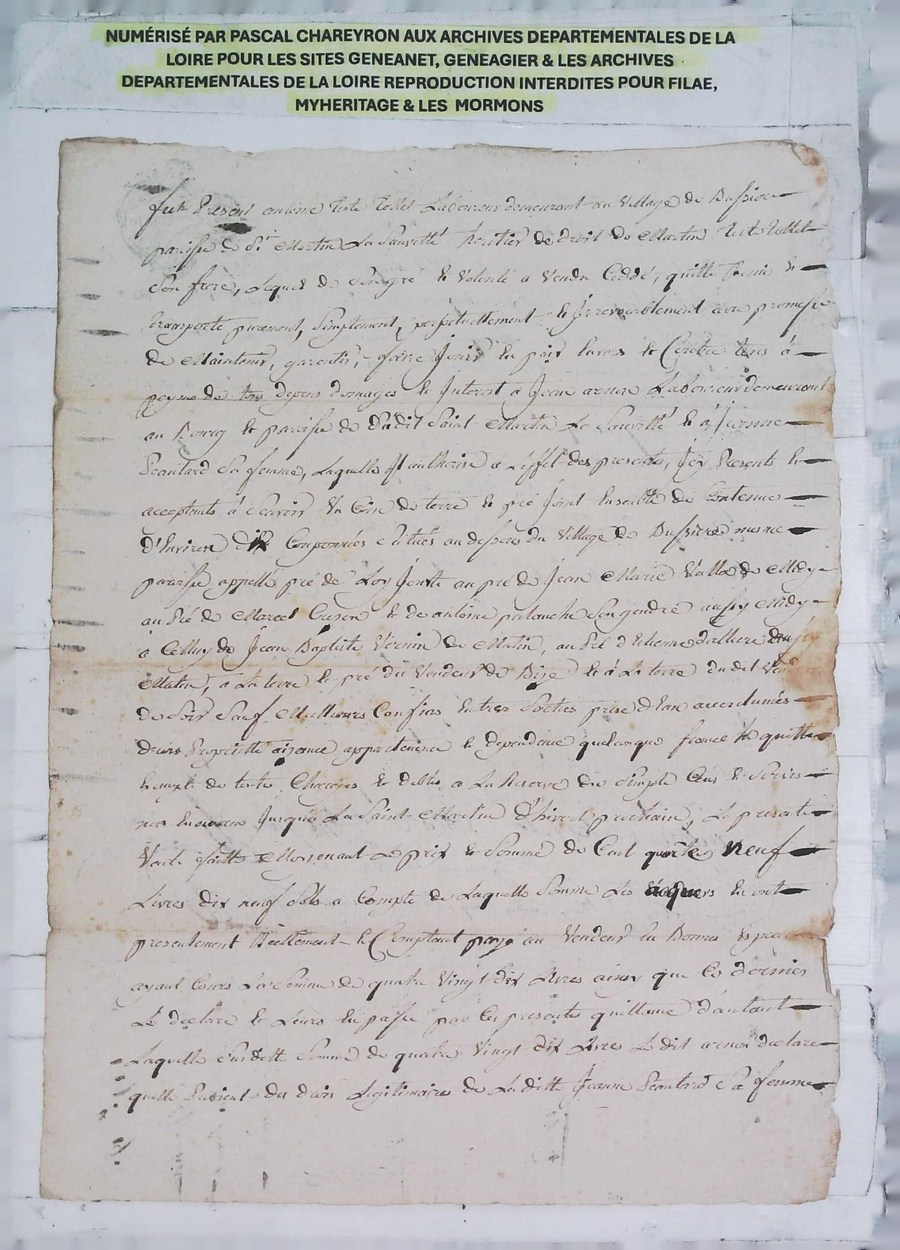 NUMÉRISÉ PAR PASCAL CHAREYRON AUX ARCHIVES DEPARTEMENTALES DE LA
LOIRE POUR LES SITES GENEANET, GENEAGIER & LES ARCHIVES
DEPARTEMENTALES DE LA LOIRE REPRODUCTION INTERDITES POUR FILAE,
MYHERITAGE & LES MORMONS
fut Present antoine Laboureur demeurant au Village de Bussiere
paroisse de St Martin La Sauveté heritier de droit de Martin
Son frere, Lequel de Son gré et Volonté a Vendu Ceddé, quitté et
transporté purement, Simplement, perpetuellement et Irrevocablement avec promesse
de Maintenir, garentir, faire Jouir en paix Envers et Contre tous à
peyne de tous depens domages et Interest a Jean arnon Laboureur demeurant
au Bourg et paroisse de Ladit Saint Martin La Sauveté et a Jeanne
Sa femme, Laquelle Il authorise a Leffet des presentes, Icy Presents et
acceptants à Scavoir Un Coin de terre et pré Joint Ensemble de Contenue
d'Environ Couponnées Scitués au dessus du Village de Bussiere meme
paroisse appellé pré de Joute au pré de Jean Marie de Midy
au Pré de Marcel et de antoine palouche Son gendre aussy Midy
a Celluy de Jean Baptiste Vernin de Matin, au Pré d'Etienne dalliere aussy
Matin, a La terre et pré du Vendeur de Bize et à La terre dudit
de Soir Sauf Meilleurs Confins Entrées Sorties prise d'Eau accoutumés
droits Proprieté aizance appartenance et dependence quelconque franc et quitte
Exempt de toutes Charges et debtes a La Reserve du Simple Cens et Servis
Jusqu'a La Saint Martin d'hiver prochain, La presente
Vente faitte Moyenant Le prix et Somme de Cent neuf
Livres dix neuf Sols a Compte de Laquelle Somme Les acquers En ont
presentement Reellement et Comptant payé au Vendeur En Bonnes
ayant Cours La Somme de quatre Vingt dix Livres ainsy que Ce dernier
Le declare et Leurs En passe par Ces presentes quittance d'autant
Laquelle Susditte Somme de quatre Vingt dix Livres Le dit arnon declare
quelle Provient des droits Legitimaires de Laditte Jeanne Sa femme